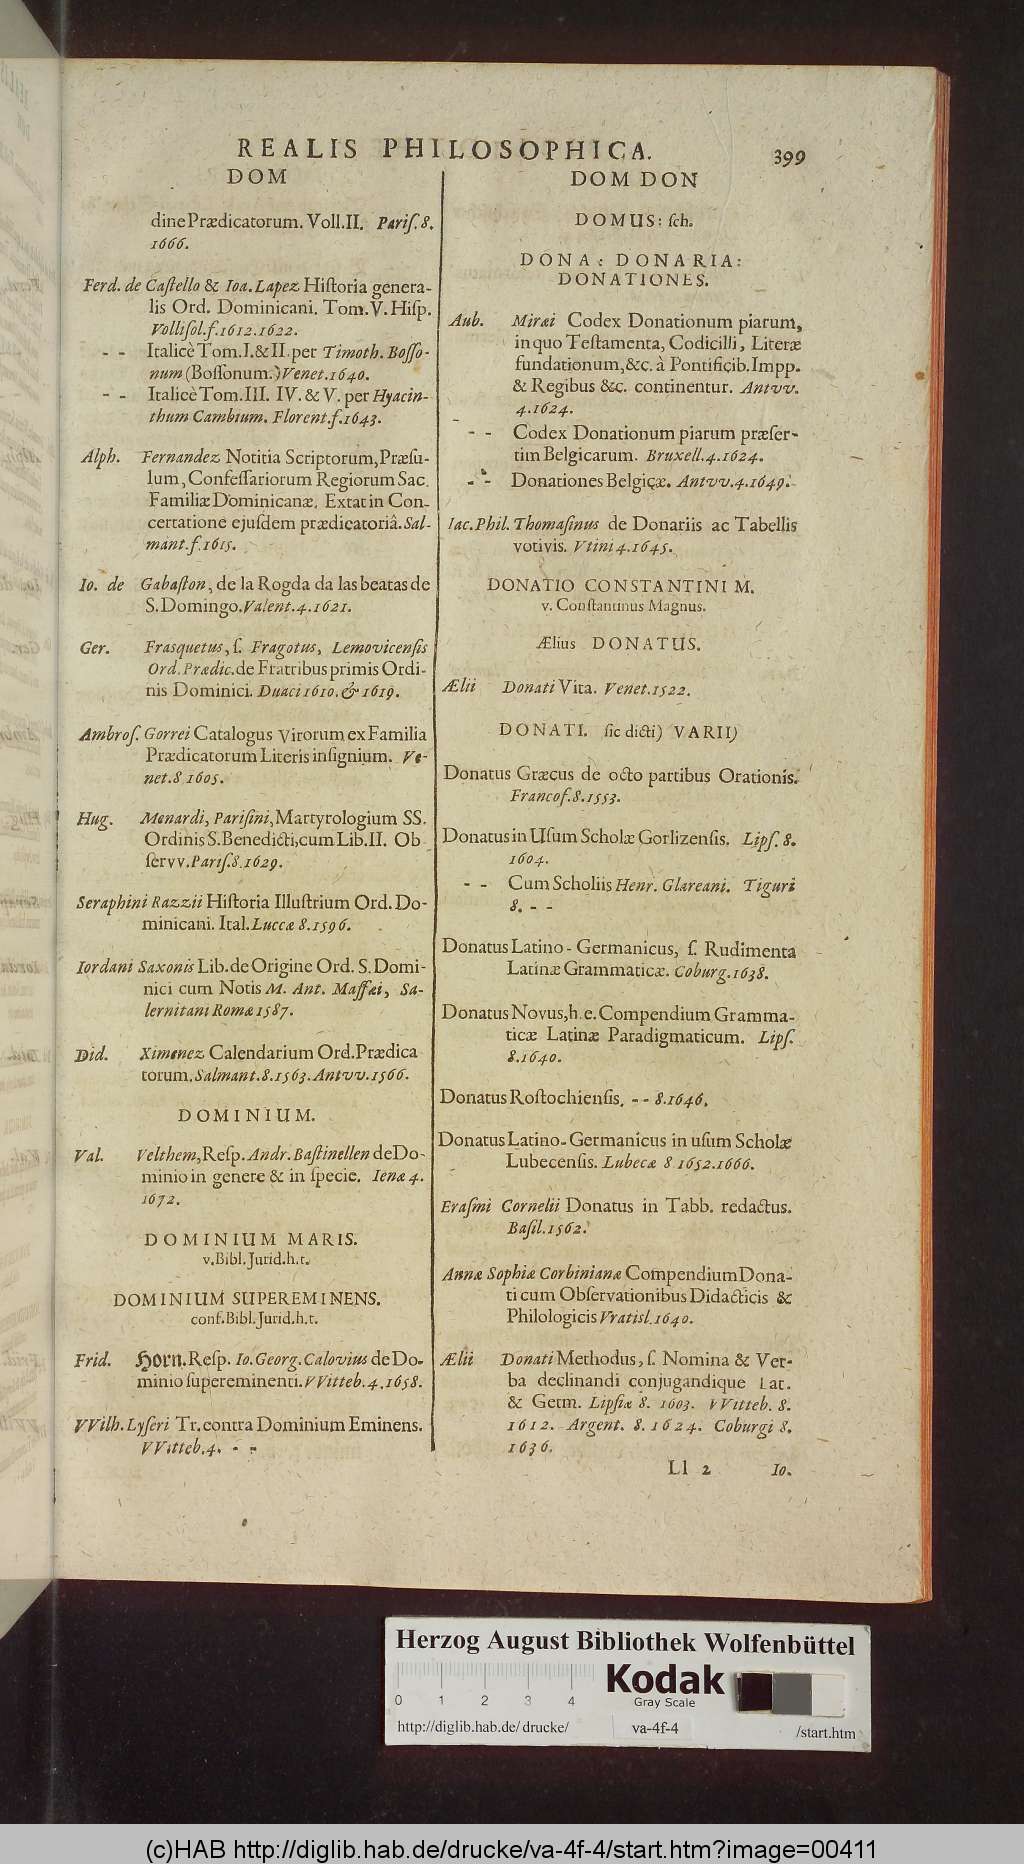 REALIS PHILOSOPHICA. 399
DOM
dine Prædicatorum. Voll.II. Pariſ. 8.
1666.
Ferd. de Caſtello & Ioa. Lapez Hiſtoria genera-
lis Ord. Dominicani. Tom. V. Hiſp.
Volliſol.f.1612.1622.
- - Italicè Tom.I.&II.per Timoth. Boſſo-
num (Boſſonum.) Venet.1640.
- - Italicè Tom. III. IV. & V. per Hyacin-
thum Cambium. Florent.f.1643.
Alph. Fernandez Notitia Scriptorum, Præſu-
lum, Confeſſariorum Regiorum Sac.
Familiæ Dominicanæ. Extat in Con-
certatione ejuſdem prædicatoriâ. Sal-
mant.f.1615.
Io. de Gabaſton, de la Rogda da las beatas de
S. Domingo. Valent.4.1621.
Ger. Fraſquetus, ſ. Fragotus, Lemovicenſis
Ord. Prædic. de Fratribus primis Ordi-
nis Dominici. Duaci 1610. & 1619.
Ambroſ. Gorrei Catalogus Virorum ex Familia
Prædicatorum Literis inſignium. Ve-
net.8 1605.
Hug. Menardi, Pariſini, Martyrologium SS.
Ordinis S. Benedicti, cum Lib. II. Ob
ſervv. Pariſ.8.1629.
Seraphini Razzii Hiſtoria Illuſtrium Ord. Do-
minicani. Ital. Luccæ 8.1596.
Iordani Saxonis Lib. de Origine Ord. S. Domi-
nici cum Notis M. Ant. Maffæi, Sa-
lernitani Romæ 1587.
Did. Ximenez Calendarium Ord. Prædica
torum. Salmant.8.1563. Antvv.1566.
DOMINIUM.
Val. Velthem, Reſp. Andr. Baſtinellen de Do-
minio in genere & in ſpecie. Ienæ 4.
1672.
DOMINIUM MARIS.
v. Bibl. Jurid. h. t.
DOMINIUM SUPEREMINENS.
conf. Bibl. Jurid. h. t.
Frid. Horn. Reſp. Io. Georg. Calovius de Do-
minio ſupereminenti. VVitteb.4.1658.
VVilh. Lyſeri Tr. contra Dominium Eminens.
VVitteb.4. - -
DOM DON
DOMUS: ſch.
DONA: DONARIA:
DONATIONES.
Aub. Miræi Codex Donationum piarum,
in quo Teſtamenta, Codicilli, Literæ
fundationum, &c. à Pontificib. Impp.
& Regibus &c. continentur. Antvv.
4.1624.
- - Codex Donationum piarum præſer-
tim Belgicarum. Bruxell.4.1624.
- - Donationes Belgicæ. Antvv.4.1649.
Iac. Phil. Thomaſinus de Donariis ac Tabellis
votivis. Vtini 4.1645.
DONATIO CONSTANTINI M.
v. Conſtantinus Magnus.
Ælius DONATUS.
Ælii Donati Vita. Venet.1522.
DONATI. ſic dicti) VARII)
Donatus Græcus de octo partibus Orationis.
Francof.8.1553.
Donatus in Uſum Scholæ Gorlizenſis. Lipſ. 8.
1604.
- - Cum Scholiis Henr. Glareani. Tiguri
8. - -
Donatus Latino-Germanicus, ſ. Rudimenta
Latinæ Grammaticæ. Coburg.1638.
Donatus Novus, h. e. Compendium Gramma-
ticæ Latinæ Paradigmaticum. Lipſ.
8.1640.
Donatus Roſtochienſis. - - 8.1646.
Donatus Latino-Germanicus in uſum Scholæ
Lubecenſis. Lubecæ 8 1652.1666.
Eraſmi Cornelii Donatus in Tabb. redactus.
Baſil.1562.
Annæ Sophiæ Corbinianæ Compendium Dona-
ti cum Obſervationibus Didacticis &
Philologicis Vratisl.1640.
Ælii Donati Methodus, ſ. Nomina & Ver-
ba declinandi conjugandique Lat.
& Germ. Lipſiæ 8. 1603. VVitteb. 8.
1612. Argent. 8. 1624. Coburgi 8.
1636.
Ll 2 Io.
Herzog August Bibliothek Wolfenbüttel
0 1 2 3 4
Kodak
Gray Scale
http://diglib.hab.de/drucke/ va-4f-4 /start.htm
(c)HAB http://diglib.hab.de/drucke/va-4f-4/start.htm?image=00411